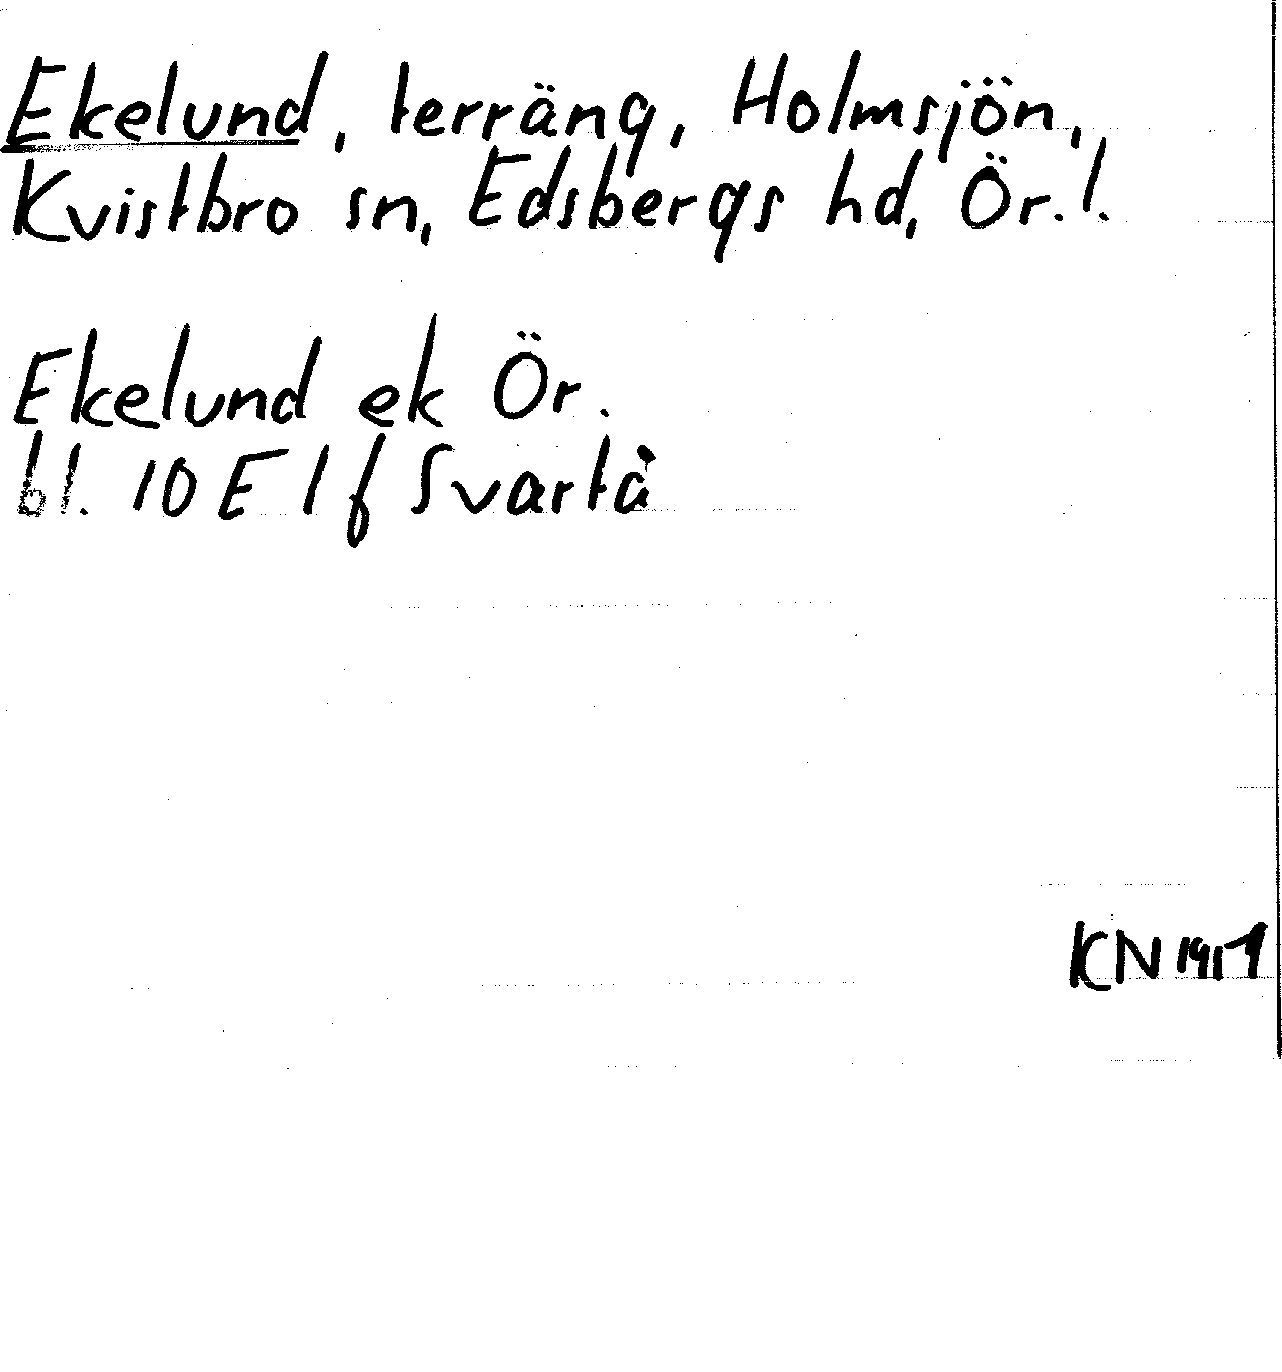 Ekelund, terräng, Holmsjön,
Kvistbro sn, Edsbergs hd, Ör. l.
Ekelund ek Ör.
bl. 10 E 1 f Svartå
KN